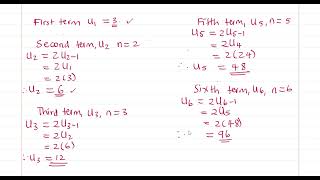 First term u₁ = 3 ✓
Second term, u₂ n = 2
u₂ = 2u₂₋₁
= 2u₁
= 2(3)
∴ u₂ = 6 ✓
Third term, u₃, n = 3
u₃ = 2u₃₋₁
= 2u₂
= 2(6)
∴ u₃ = 12
Fifth term, u₅, n = 5
u₅ = 2u₅₋₁
= 2u₄
= 2(24)
∴ u₅ = 48
Sixth term, u₆, n = 6
u₆ = 2u₆₋₁
= 2u₅
= 2(48)
∴ = 96